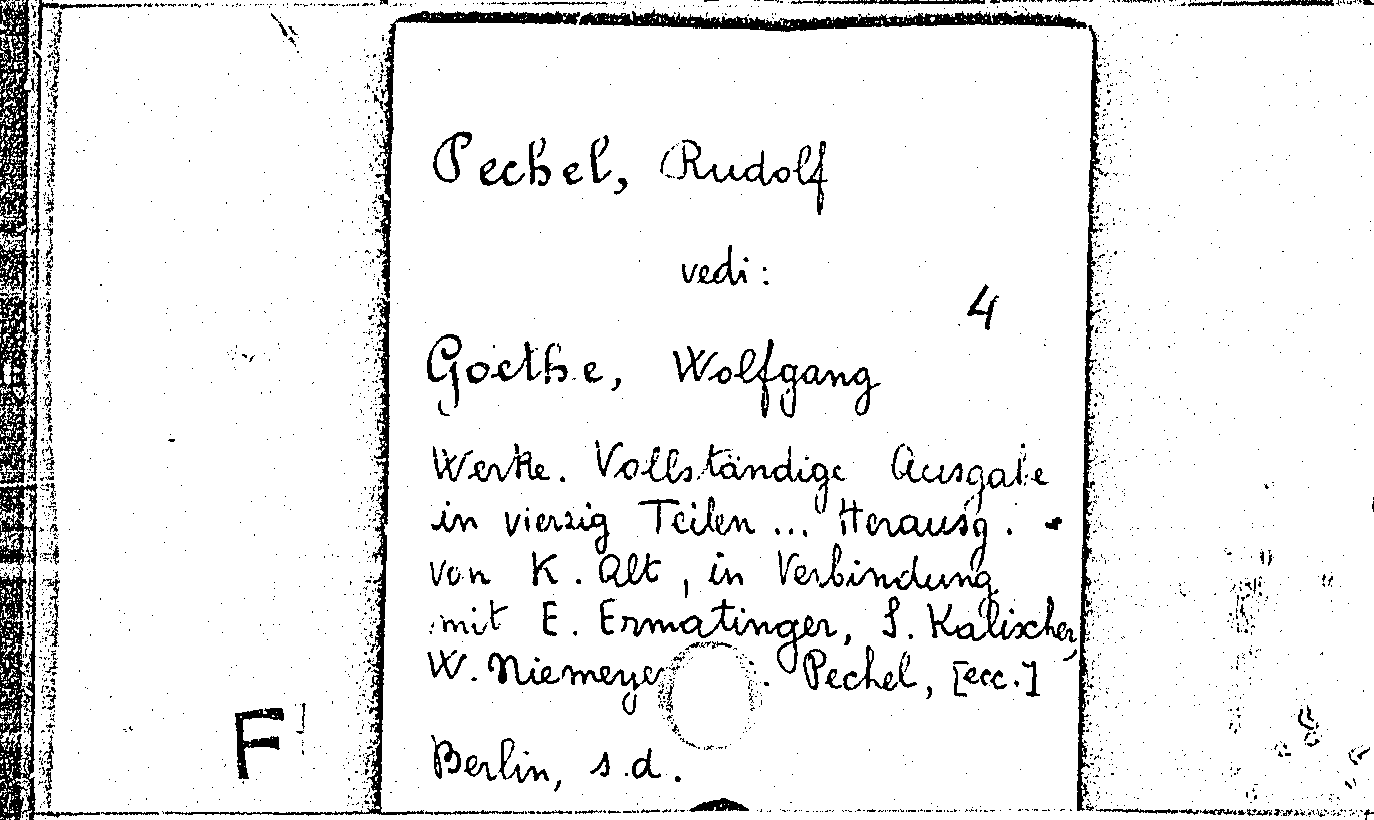 Pechel, Rudolf
vedi:
4
Goethe, Wolfgang
Werke. Vollständige Ausgabe
in vierzig Teilen ... Herausg.
von K. Alt, in Verbindung
mit E. Ermatinger, S. Kalischer,
W. Niemeye . Pechel, [ecc.]
F
Berlin, s.d.